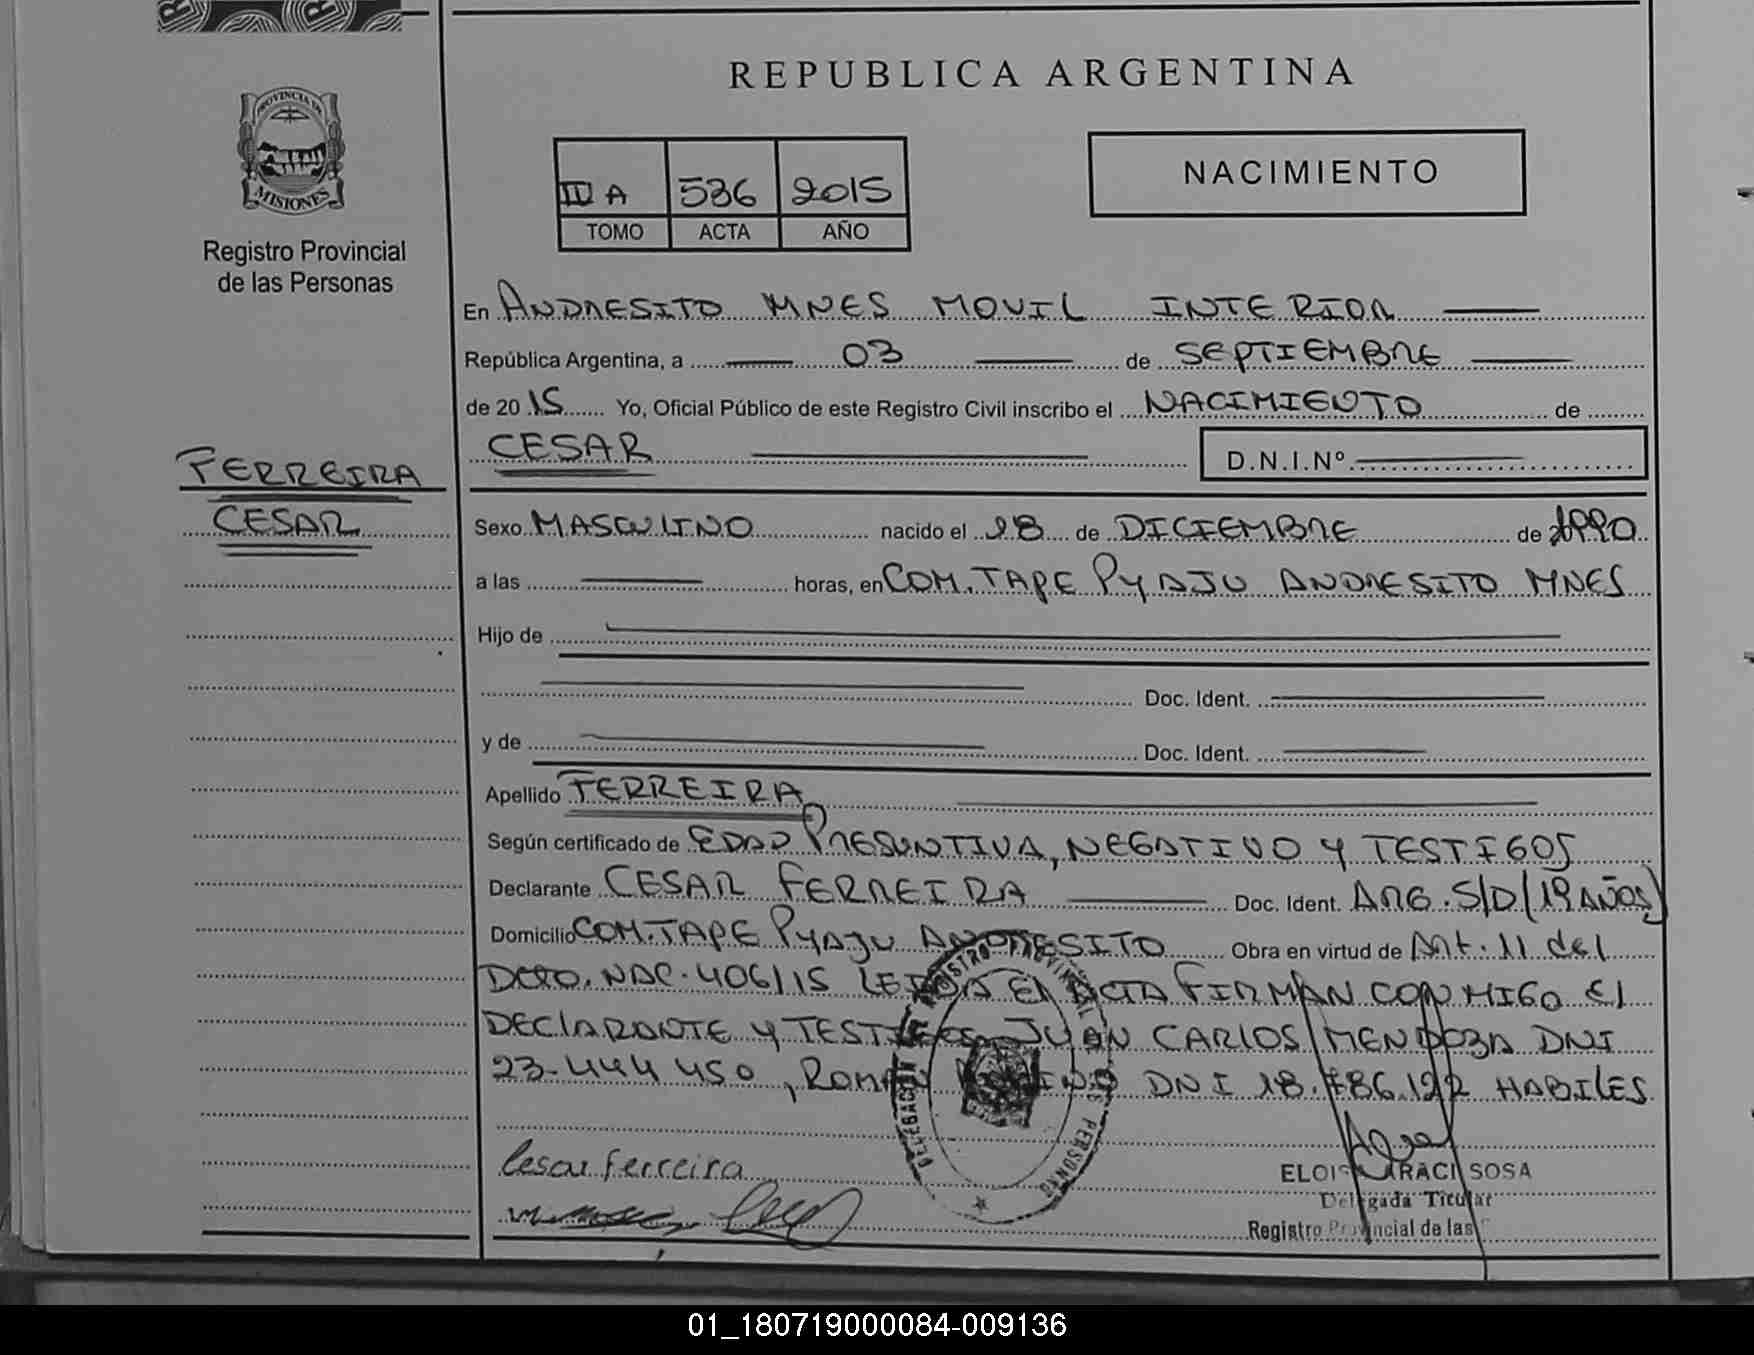 REPUBLICA ARGENTINA
PROVINCIA DE MISIONES
Registro Provincial
de las Personas
II A 536 2015
TOMO ACTA AÑO
NACIMIENTO
En ANDRESITO MNES MOVIL INTERIOR
República Argentina, a 03 de SEPTIEMBRE
de 2015 Yo, Oficial Público de este Registro Civil inscribo el NACIMIENTO de
CESAR D.N.I.Nº
FERREIRA
CESAR
Sexo MASCULINO nacido el 28 de DICIEMBRE de 1990
a las horas, en COM. TAPE PYAJU ANDRESITO MNES
Hijo de
Doc. Ident.
y de Doc. Ident.
Apellido FERREIRA
Según certificado de EDAD PRESUNTIVA, NEGATIVO Y TESTIGOS
Declarante CESAR FERREIRA Doc. Ident. ARG. S/D (19 AÑOS)
Domicilio COM. TAPE PYAJU ANDRESITO Obra en virtud de Art. 11 del
DCTO. NAC. 406/15 LEIDA El ACTA FIRMAN CONMIGO El
DEClARANTE Y TESTIGOS JUAN CARLOS MENDOZA DNI
23.444 450, DNI 18.786.122 HABILES
DELEGACION REGISTRO PROVINCIAL DE PERSONAS
Cesar ferreira
ELOISA ARACI SOSA
Delegada Titular
Registro Provincial de las
01_180719000084-009136